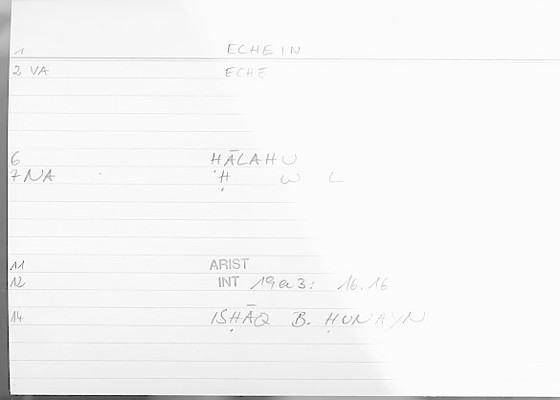 1 ECHEIN
2 VA ECHE
6 ḤĀLAHU
7 NA Ḥ W L
11 ARIST
12 INT 19a3: 16.16
14 ISḤĀQ B. ḤUNAYN